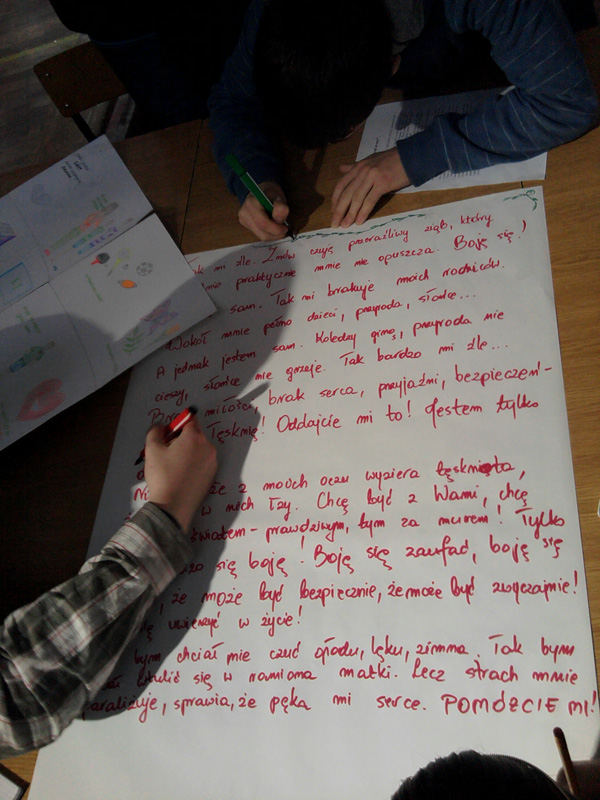 mi źle. Znów czuję przeraźliwy ziąb, który
praktycznie mnie nie opuszcza. Boję się!
sam. Tak mi brakuje moich rodziców.
Wokół mnie pełno dzieci, przyroda, słońce...
A jednak jestem sam. Koledzy giną, przyroda nie
cieszy, słońce nie grzeje. Tak bardzo mi źle...
miłości, brak serca, przyjaźni, bezpieczeń-
Tęsknię! Oddajcie mi to! Jestem tylko
z moich oczu wyziera tęsknota,
w nich łzy. Chcę być z Wami, chcę
światem - prawdziwym, tym za murem! Tylko
się boję! Boję się zaufać, boję się
że może być bezpiecznie, że może być zwyczajnie!
uwierzyć w życie!
bym chciał nie czuć głodu, lęku, zimna. Tak bym
się w ramiona matki. Lecz strach mnie
paraliżuje, sprawia, że pęka mi serce. POMÓŻCIE MI!